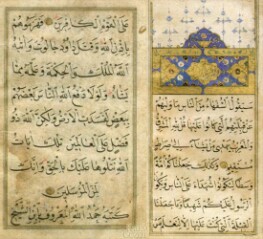 سيقول السفهاء من الناس ما وليهم
عن قبلتهم التي كانوا عليها قل لله المشرق
والمغرب يهدي من يشاء الى صراط
مستقيم وكذلك جعلناكم امة
وسطا لتكونوا شهداء على الناس ويكون
الرسول عليكم شهيدا وما جعلنا
القبلة التي كنت عليها الا لنعلم من
على القوم الكافرين فهزموهم
باذن الله وقتل داود جالوت واتيه
الله الملك والحكمة وعلمه مما
يشاء ولولا دفع الله الناس بعضهم
ببعض لفسدت الارض ولكن الله ذو
فضل على العالمين تلك ايات
الله نتلوها عليك بالحق وانك
لمن المرسلين
كتبه حمد الله المعروف بابن الشيخ